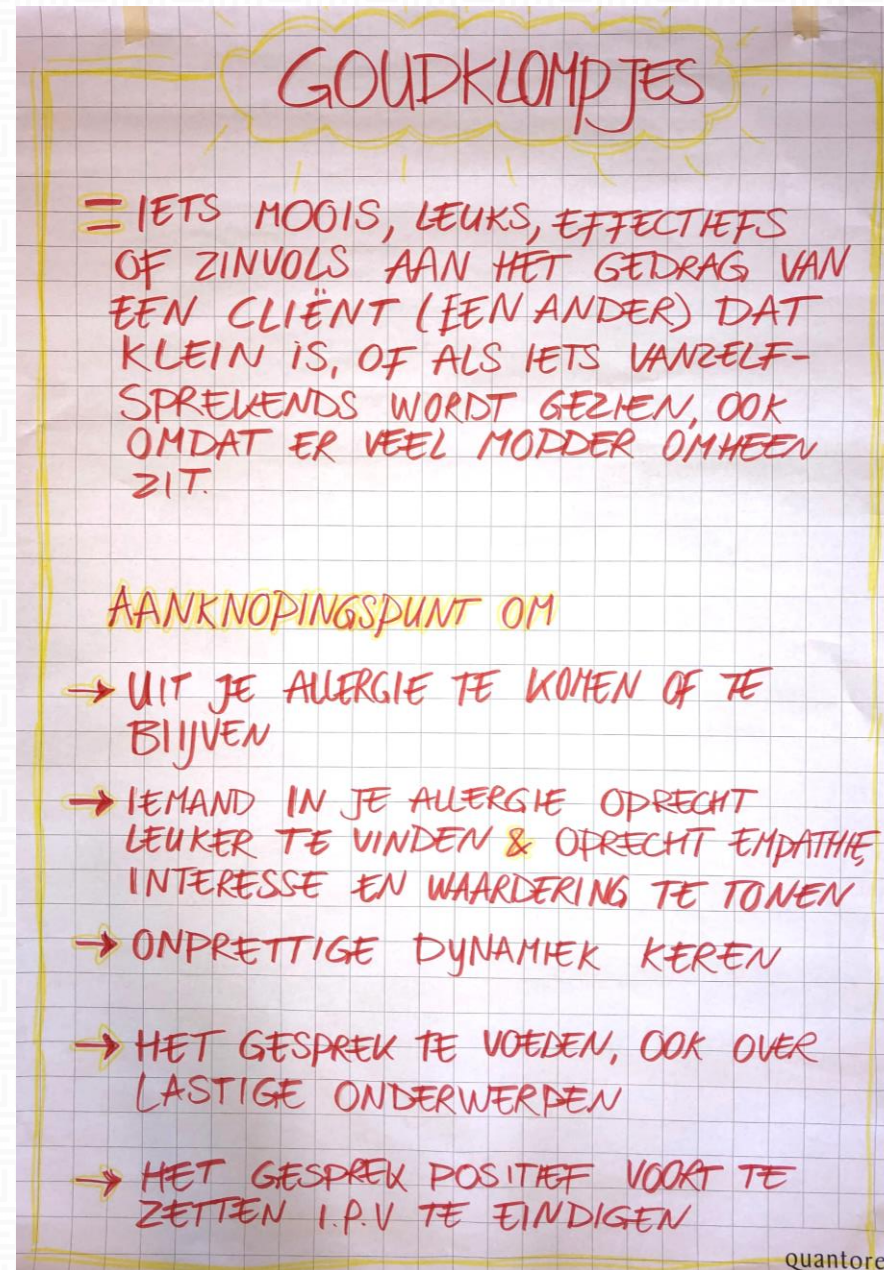 GOUDKLOMPJES
= IETS MOOIS, LEUKS, EFFECTIEFS
OF ZINVOLS AAN HET GEDRAG VAN
EEN CLIËNT (EEN ANDER) DAT
KLEIN IS, OF ALS IETS VANZELF-
SPREKENDS WORDT GEZIEN, OOK
OMDAT ER VEEL MODDER OMHEEN
ZIT.
AANKNOPINGSPUNT OM
→ UIT JE ALLERGIE TE KOMEN OF TE
BLIJVEN
→ IEMAND IN JE ALLERGIE OPRECHT
LEUKER TE VINDEN & OPRECHT EMPATHIE,
INTERESSE EN WAARDERING TE TONEN
→ ONPRETTIGE DYNAMIEK KEREN
→ HET GESPREK TE VOEDEN, OOK OVER
LASTIGE ONDERWERPEN
→ HET GESPREK POSITIEF VOORT TE
ZETTEN I.P.V TE EINDIGEN
quantore